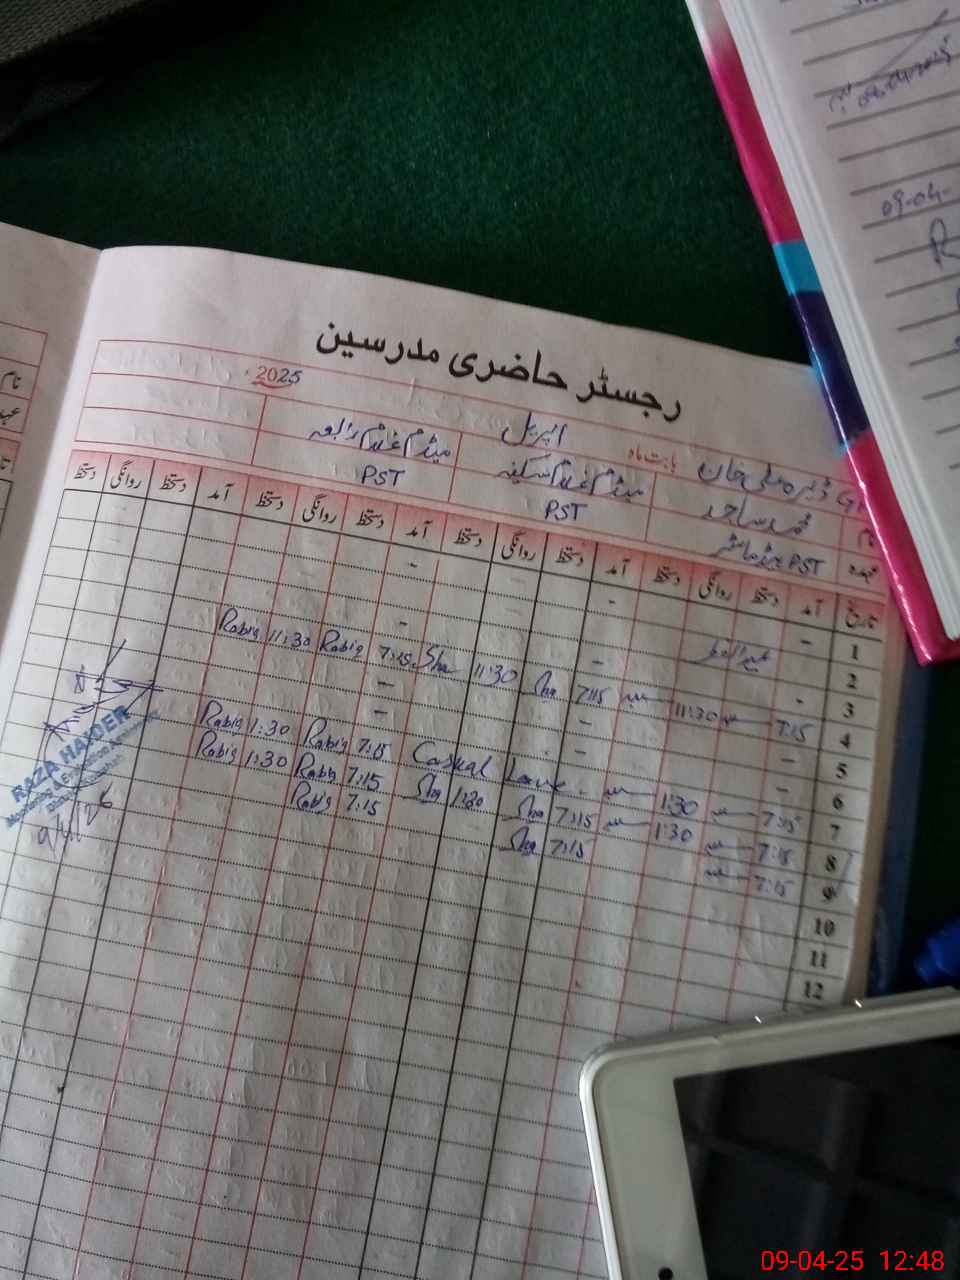 رجسٹر حاضری مدرسین
2025
بابت ماہ اپریل
ڈیرہ علی خان
نام محمد ساجد میڈم غلام سکینہ میڈم غلام رابعہ
عہدہ PST ہیڈ ماسٹر PST PST
تاریخ آمد دستخط روانگی دستخط آمد دستخط روانگی دستخط آمد دستخط روانگی دستخط آمد دستخط روانگی دستخط
1 -
2 عید الفطر
3 -
4 7:15 11:30 7:15 Sha 11:30 Sha 7:15 Rabia 11:30 Rabia
5 -
6 -
7 7:15 1:30 Casual Leave 7:15 Rabia 1:30 Rabia
8 7:15 1:30 7:15 Sha 1:30 Sha 7:15 Rabia 1:30 Rabia
9 7:15 7:15 Sha 7:15 Rabia
10
11
12
RAZA HAIDER
Monitoring & Evaluation
نام
09-04-
09-04-25 12:48